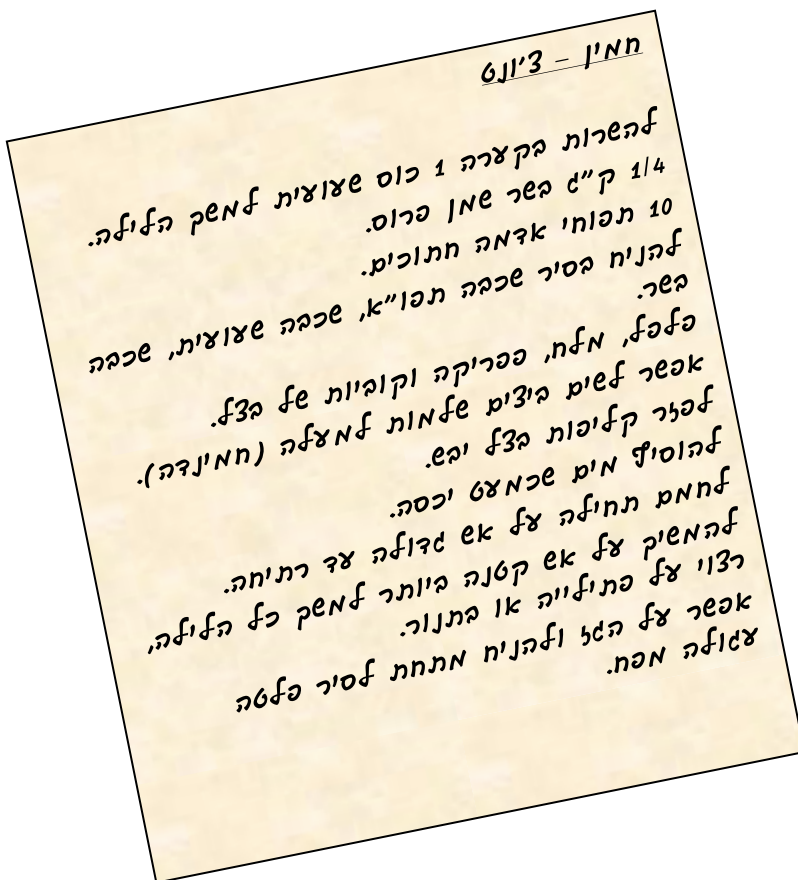 חמין – צ'ונט
להשרות בקערה 1 כוס שעועית למשך הלילה.
1/4 ק"ג בשר שמן פרוס.
10 תפוחי אדמה חתוכים.
להניח בסיר שכבה תפו"א, שכבה שעועית, שכבה
בשר.
פלפל, מלח, פפריקה וקוביות של בצל.
אפשר לשים ביצים שלמות למעלה (חמינדה).
לפזר קליפות בצל יבש.
להוסיף מים שכמעט יכסה.
לחמם תחילה על אש גדולה עד רתיחה.
להמשיך על אש קטנה ביותר למשך כל הלילה,
רצוי על פתילייה או בתנור.
אפשר על הגז ולהניח מתחת לסיר פלטה
עגולה מפח.